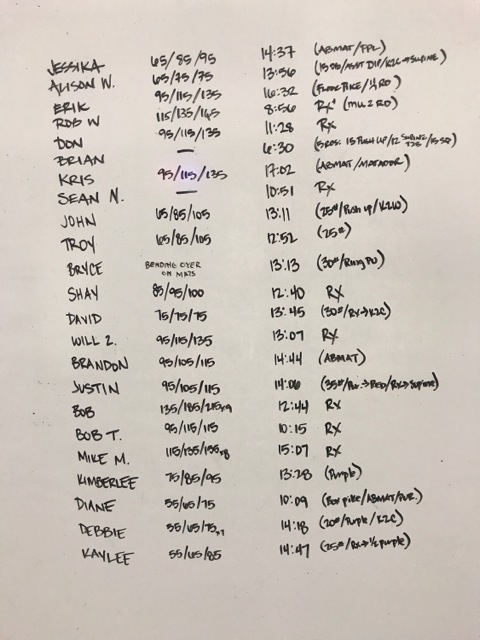 JESSIKA 65/85/95 14:37 (ABMAT/PPL)
ALISON W. 65/75/75 13:56 (15 DB/ASST DIP/K2C→SUPINE)
ERIK 95/115/135 16:32
ROB W 115/135/145 8:56 RX+ (MU. 2 RD)
DON 95/115/135 11:28 RX
BRIAN — 6:30 (5 RDS: 15 PUSH UP/12 SUPINE /15 SQ)
KRIS 95/115/135 17:02 (ABMAT/MATADOR)
SEAN N. — 10:51 RX
JOHN 65/85/105 13:11 (25#/PUSH UP/K2W)
TROY 65/85/105 12:52 (25#)
BRYCE BENDING OVER ON MATS 13:13 (30#/RING PU)
SHAY 85/95/100 12:40 RX
DAVID 75/75/75 13:45 (30#/RX→K2C)
WILL Z. 95/115/135 13:07 RX
BRANDON 95/105/115 14:44 (ABMAT)
JUSTIN 95/105/115 14:06 (35#/PUR.→RED/RX→SUPINE)
BOB 135/185/215x9 12:44 RX
BOB T. 95/115/115 10:15 RX
MIKE M. 115/135/155x8 15:07 RX
KIMBERLEE 75/85/95 13:28 (PURPLE)
DIANE 55/65/75 10:09 (BOX PIKE/ABMAT/PUR.)
DEBBIE 55/65/75x7 14:18 (20#/PURPLE/K2C)
KAYLEE 55/65/85 14:47 (25#/RX→½ PURPLE)